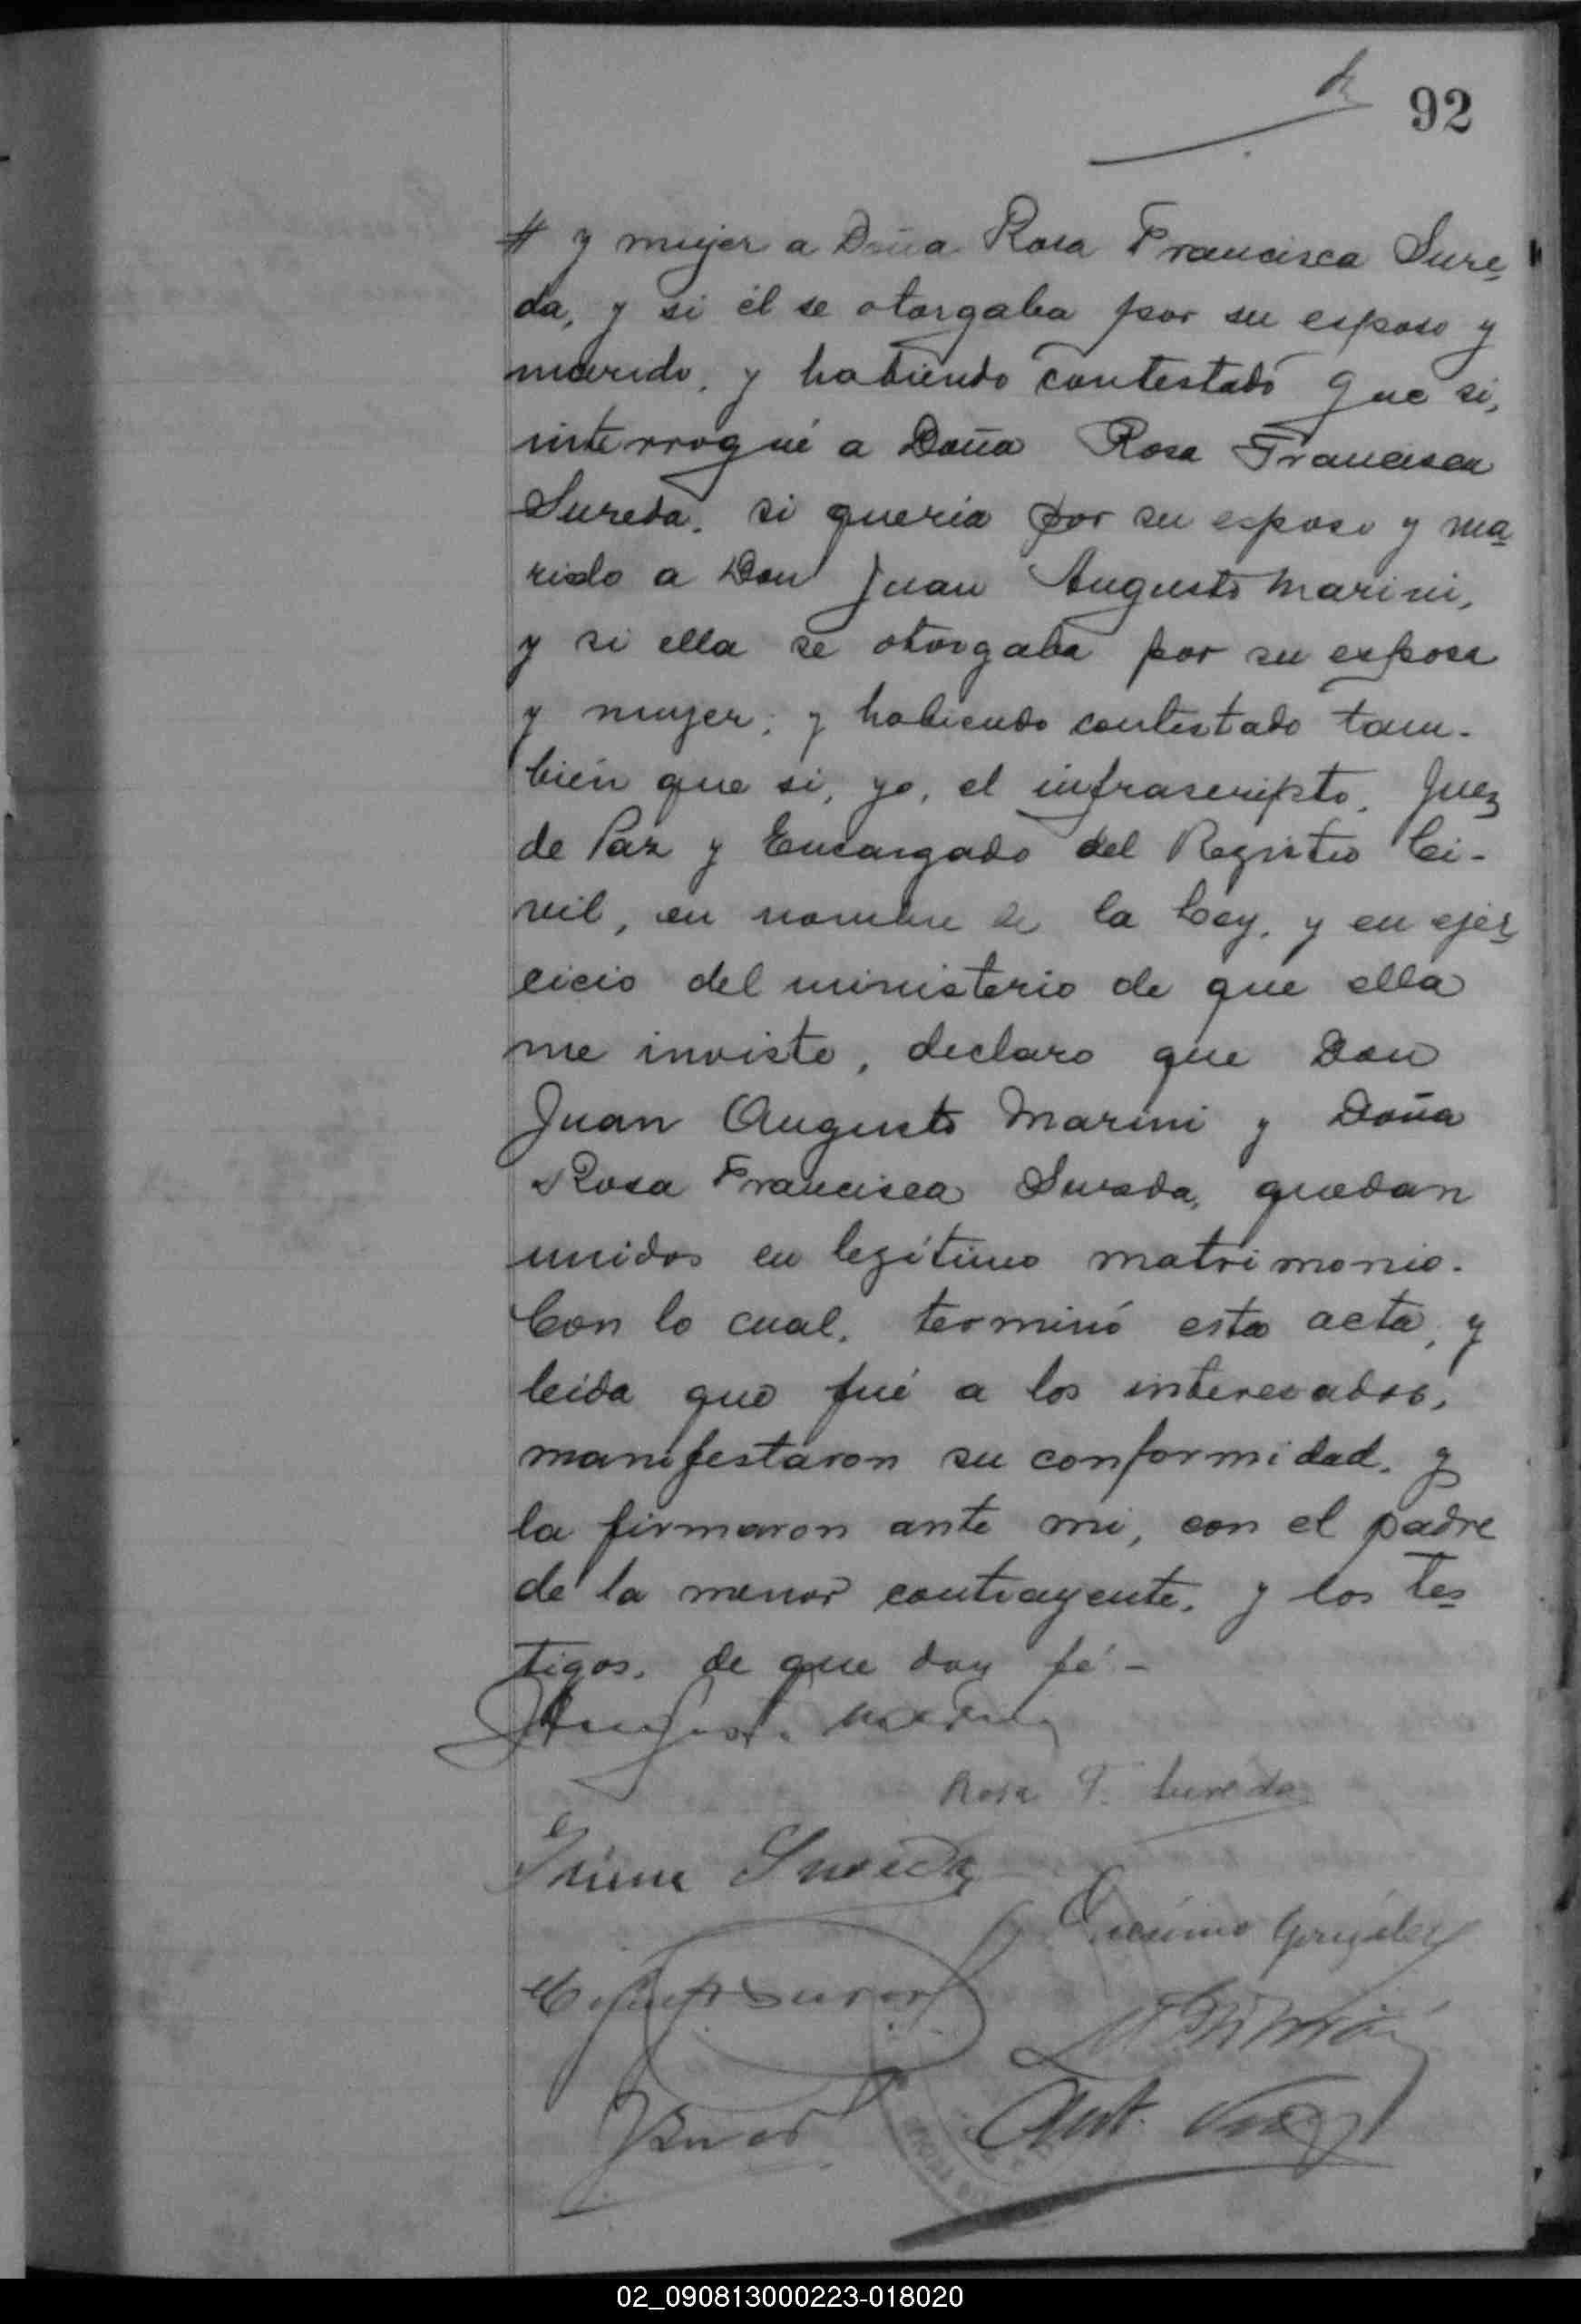 92
# y mujer a Doña Rosa Francisca Sure-
da, y si él se otorgaba por su esposo y
marido, y habiendo contestado que si,
interrogué a Doña Rosa Francisca
Sureda, si queria por su esposo y ma-
rido a Don Juan Augusto Marini,
y si ella se otorgaba por su esposa
y mujer; y habiendo contestado tam-
bién que si, yo, el infrascripto, Juez
de Paz y Encargado del Registro Ci-
vil, en nombre de la Ley, y en ejer-
cicio del ministerio de que ella
me inviste, declaro que Don
Juan Augusto Marini y Doña
Rosa Francisca Sureda, quedan
unidos en legítimo matrimonio.
Con lo cual, terminó esta acta, y
leída que fué a los interesados,
manifestaron su conformidad, y
la firmaron ante mi, con el padre
de la menor contrayente, y los tes-
tigos, de que doy fé -
Rosa F. Sureda
Sureda
González
Ant.
02_090813000223-018020